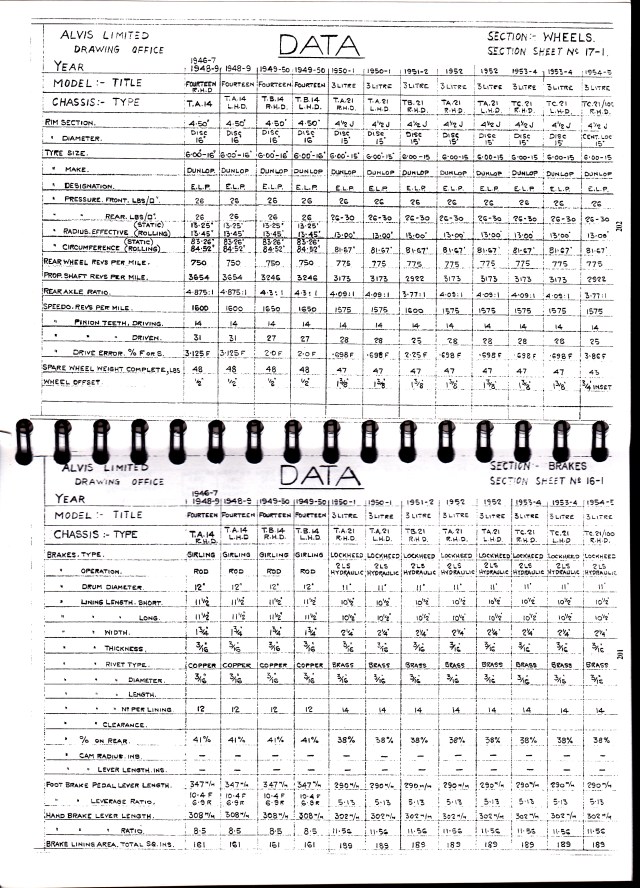 ALVIS LIMITED DATA SECTION:- WHEELS.
DRAWING OFFICE SECTION SHEET Nº 17-1.
YEAR 1946-7 1948-9 1948-9 1949-50 1949-50 1950-1 1950-1 1951-2 1952 1952 1953-4 1953-4 1954-5
MODEL:- TITLE FOURTEEN R.H.D FOURTEEN FOURTEEN FOURTEEN 3 LITRE 3 LITRE 3 LITRE 3 LITRE 3 LITRE 3 LITRE 3 LITRE 3 LITRE
CHASSIS:- TYPE T.A.14 T.A.14 L.H.D. T.B.14 R.H.D T.B.14 L.H.D T.A.21 R.H.D. T.A.21 L.H.D. TB.21 R.H.D. TA.21 R.H.D. TA.21 L.H.D. TC.21 R.H.D. TC.21 L.H.D. TC.21/100 R.H.D.
RIM SECTION. 4·50" 4·50" 4·50" 4·50" 4½ J 4½ J 4½ J 4½ J 4½ J 4½ J 4½ J 4½ J
" DIAMETER. DISC 16" DISC 16" DISC 16" DISC 16" DISC 15" DISC 15" DISC 15" DISC 15" DISC 15" DISC 15" DISC 15" CENT. LOC 15"
TYRE SIZE. 6·00-16" 6·00-16" 6·00-16" 6·00-16" 6·00-15" 6·00-15" 6·00-15 6·00-15 6·00-15 6·00-15 6·00-15 6·00-15
" MAKE. DUNLOP. DUNLOP DUNLOP DUNLOP DUNLOP DUNLOP DUNLOP DUNLOP DUNLOP DUNLOP DUNLOP DUNLOP
" DESIGNATION. E.L.P. E.L.P. E.L.P. E.L.P. E.L.P. E.L.P. E.L.P. E.L.P. E.L.P. E.L.P. E.L.P. E.L.P.
" PRESSURE. FRONT. LBS/□". 26 26 26 26 26 26 26 26 26 26 26 26
" REAR. LBS/□". 26 26 26 26 26-30 26-30 26-30 26-30 26-30 26-30 26-30 26-30
" RADIUS. EFFECTIVE (STATIC) (ROLLING) 13·25" 13·45" 13·25" 13·45" 13·25" 13·45" 13·25" 13·45" 13·00" 13·00" 13·00" 13·00" 13·00" 13·00" 13·00" 13·00"
" CIRCUMFERENCE (STATIC) (ROLLING) 83·26" 84·52" 83·26" 84·52" 83·26" 84·52" 83·26" 84·52" 81·67" 81·67" 81·67" 81·67" 81·67" 81·67" 81·67" 81·67"
REAR WHEEL REVS PER MILE. 750 750 750 750 775 775 775 775 775 775 775 775
PROP. SHAFT REVS PER MILE. 3654 3654 3246 3246 3173 3173 2922 3173 3173 3173 3173 2922
REAR AXLE RATIO. 4·875:1 4·875:1 4·3:1 4·3:1 4·09:1 4·09:1 3·77:1 4·09:1 4·09:1 4·09:1 4·09:1 3·77:1
SPEEDO. REVS PER MILE. 1600 1600 1650 1650 1575 1575 1600 1575 1575 1575 1575 1575
" PINION TEETH, DRIVING. 14 14 14 14 14 14 14 14 14 14 14 14
" " " DRIVEN. 31 31 27 27 28 28 25 28 28 28 28 25
" DRIVE ERROR. % F OR S. 3·125 F 3·125 F 2·0 F 2·0 F ·698 F ·698 F 2·25 F ·698 F ·698 F ·698 F ·698 F 3·86 F
SPARE WHEEL WEIGHT COMPLETE, LBS 48 48 48 48 47 47 47 47 47 47 47 43
WHEEL OFFSET ½" ½" ½" ½" 1⅜" 1⅜" 1⅜" 1⅜" 1⅜" 1⅜" 1⅜" ¾ INSET
202
ALVIS LIMITED DATA SECTION:- BRAKES
DRAWING OFFICE SECTION SHEET Nº 16-1
YEAR 1946-7 1948-9 1948-9 1949-50 1949-50 1950-1 1950-1 1951-2 1952 1952 1953-4 1953-4 1954-5
MODEL:- TITLE FOURTEEN FOURTEEN FOURTEEN FOURTEEN 3 LITRE 3 LITRE 3 LITRE 3 LITRE 3 LITRE 3 LITRE 3 LITRE 3 LITRE
CHASSIS:- TYPE T.A.14 R.H.D. T.A.14 L.H.D T.B.14 R.H.D. T.B.14 L.H.D. T.A.21 R.H.D. T.A.21 L.H.D. TB.21 R.H.D. TA.21 R.H.D. TA.21 L.H.D. TC.21 R.H.D. TC.21 L.H.D. TC.21/100 R.H.D.
BRAKES. TYPE. GIRLING GIRLING GIRLING GIRLING LOCKHEED LOCKHEED LOCKHEED LOCKHEED LOCKHEED LOCKHEED LOCKHEED LOCKHEED
" OPERATION. ROD ROD ROD ROD 2LS HYDRAULIC 2LS HYDRAULIC 2LS HYDRAULIC 2LS HYDRAULIC 2LS HYDRAULIC 2LS HYDRAULIC 2LS HYDRAULIC 2LS HYDRAULIC
" DRUM DIAMETER. 12" 12" 12" 12" 11" 11" 11" 11" 11" 11" 11" 11"
" LINING LENGTH. SHORT. 11½" 11½" 11½" 11½" 10½" 10½" 10½" 10½" 10½" 10½" 10½" 10½"
" " " LONG. 11½" 11½" 11½" 11½" 10½" 10½" 10½" 10½" 10½" 10½" 10½" 10½"
" " WIDTH. 1¾" 1¾" 1¾" 1¾" 2¼" 2¼" 2¼" 2¼" 2¼" 2¼" 2¼" 2¼"
" " THICKNESS. 3/16" 3/16" 3/16" 3/16" 3/16" 3/16" 3/16" 3/16" 3/16" 3/16" 3/16" 3/16"
" " RIVET TYPE. COPPER COPPER COPPER COPPER BRASS BRASS BRASS BRASS BRASS BRASS BRASS BRASS
" " " DIAMETER. 3/16" 3/16" 3/16" 3/16" 3/16" 3/16" 3/16" 3/16" 3/16" 3/16" 3/16" 3/16"
" " " LENGTH.
" " " Nº PER LINING. 12 12 12 12 14 14 14 14 14 14 14 14
" " CLEARANCE.
" % ON REAR. 41% 41% 41% 41% 38% 38% 38% 38% 38% 38% 38% 38%
" CAM RADIUS. INS. – – – – – – – – – – – –
" " LEVER LENGTH. INS. – – – – – – – – – – – –
FOOT BRAKE PEDAL LEVER LENGTH. 347 m/m 347 m/m 347 m/m 347 m/m 290 m/m 290 m/m 290 m/m 290 m/m 290 m/m 290 m/m 290 m/m 290 m/m
" " LEVERAGE RATIO. 10·4 F 6·9 R 10·4 F 6·9 R 10·4 F 6·9 R 10·4 F 6·9 R 5·13 5·13 5·13 5·13 5·13 5·13 5·13 5·13
HAND BRAKE LEVER LENGTH. 308 m/m 308 m/m 308 m/m 308 m/m 302 m/m 302 m/m 302 m/m 302 m/m 302 m/m 302 m/m 302 m/m 302 m/m
" " " RATIO. 8·5 8·5 8·5 8·5 11·56 11·56 11·56 11·56 11·56 11·56 11·56 11·56
BRAKE LINING AREA. TOTAL SQ. INS. 161 161 161 161 189 189 189 189 189 189 189 189
201